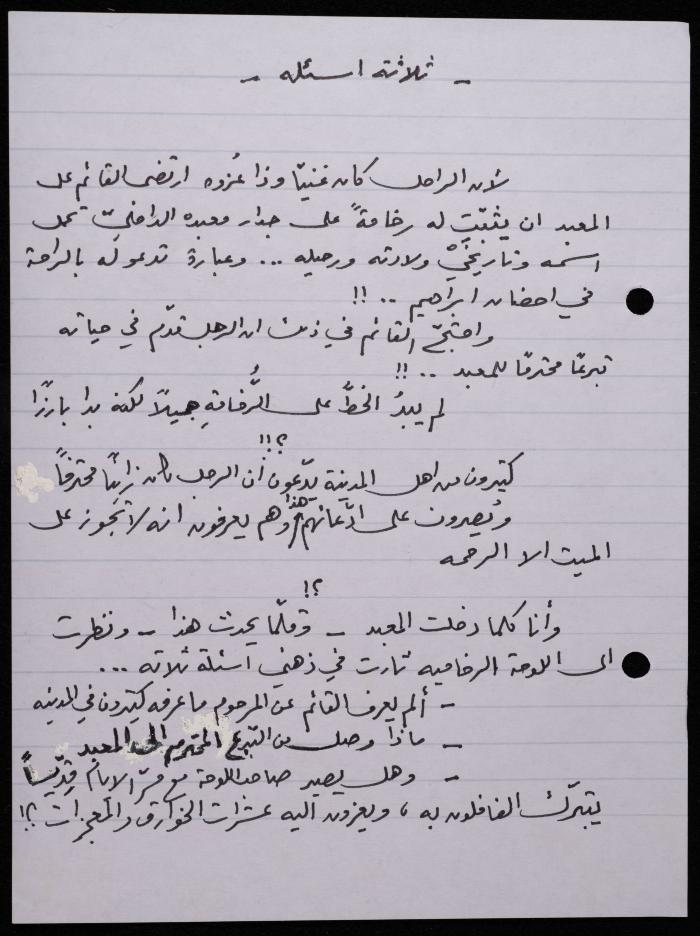 - ثلاثة اسئله -
لأن الراحل كان غنيّا وذا عُزوه ارتضى القائم على
المعبد ان يثبّت له رخامةً على جدار معبده الداخليّ تحمل
اسمه وتاريخيْ ولادته ورحيله ... وعبارة تدعو له بالراحة
في احضان ابراهيم .. !!
واحتجّ القائم في ذلك ان الرجل قدّم في حياته
تبرعًا محترمًا للمعبد .. !!
لم يبدُ الخطُّ على الرُّخامةِ جميلاً لكنه بدا بارزًا
؟!!
كثيرون من اهل المدينة يدّعون أن الرجل كان زانيًا محترفاً
ويُصرون على ادّعائهم هذا وهم يعرفون انه لا تجوز على
الميت الا الرحمه
؟!
وأنا كلما دخلت المعبد - وقلّما يحدث هذا - ونظرت
الى اللوحة الرخاميه ثارت في ذهني اسئلة ثلاثه ...
- ألم يعرف القائم عن المرحوم ما عرفه كثيرون في المدينه
- ماذا وصل من التبرّع المحترم الى المعبد
- وهل يصير صاحب اللوحة مع مرّ الايام قدّيساً
يتبرّك الغافلون به ، ويعزون اليه عشرات الخوارق والمعجزات ؟!